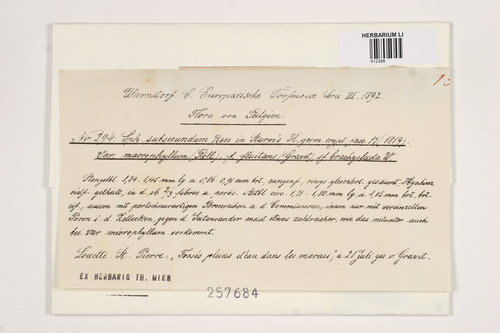 HERBARIUM LI
612366
13
Warnstorf C. Europaeische Torfmoose. Serie III. 1892.
Flora von Belgien
No. 294. Sph. subsecundum Nees in Sturm's Fl. germ. crypt. fasc. 17 (1819)
Var. macrophyllum (Röll), f. fluitans (Grav.), sf. brachyclada W.
Stengelbl. 1,34-1,45 mm lg. u. 0,86-0,94 mm bt., zungenf., rings gleichbr. gesäumt. Hyalinz.
vielf. geteilt, in d. ob. 2/3 fibrös u. porös. Astbl. eif. 1,71-1,80 mm lg. u. 1,15 mm bt.
aussen mit perlschnurartigen Porenreihen a. d. Commissuren, innen nur mit vereinzelten
Poren i. d. Zellecken, gegen d. Seitenränder meist etwas zahlreicher, wie das mitunter auch
bei Var. microphyllum vorkommt.
Louette-St. Pierre. „Fossés pleins d'eau dans les marais", a. 21. Juli ges. v. Gravet.
EX HERBARIO TH. WIEN
257684